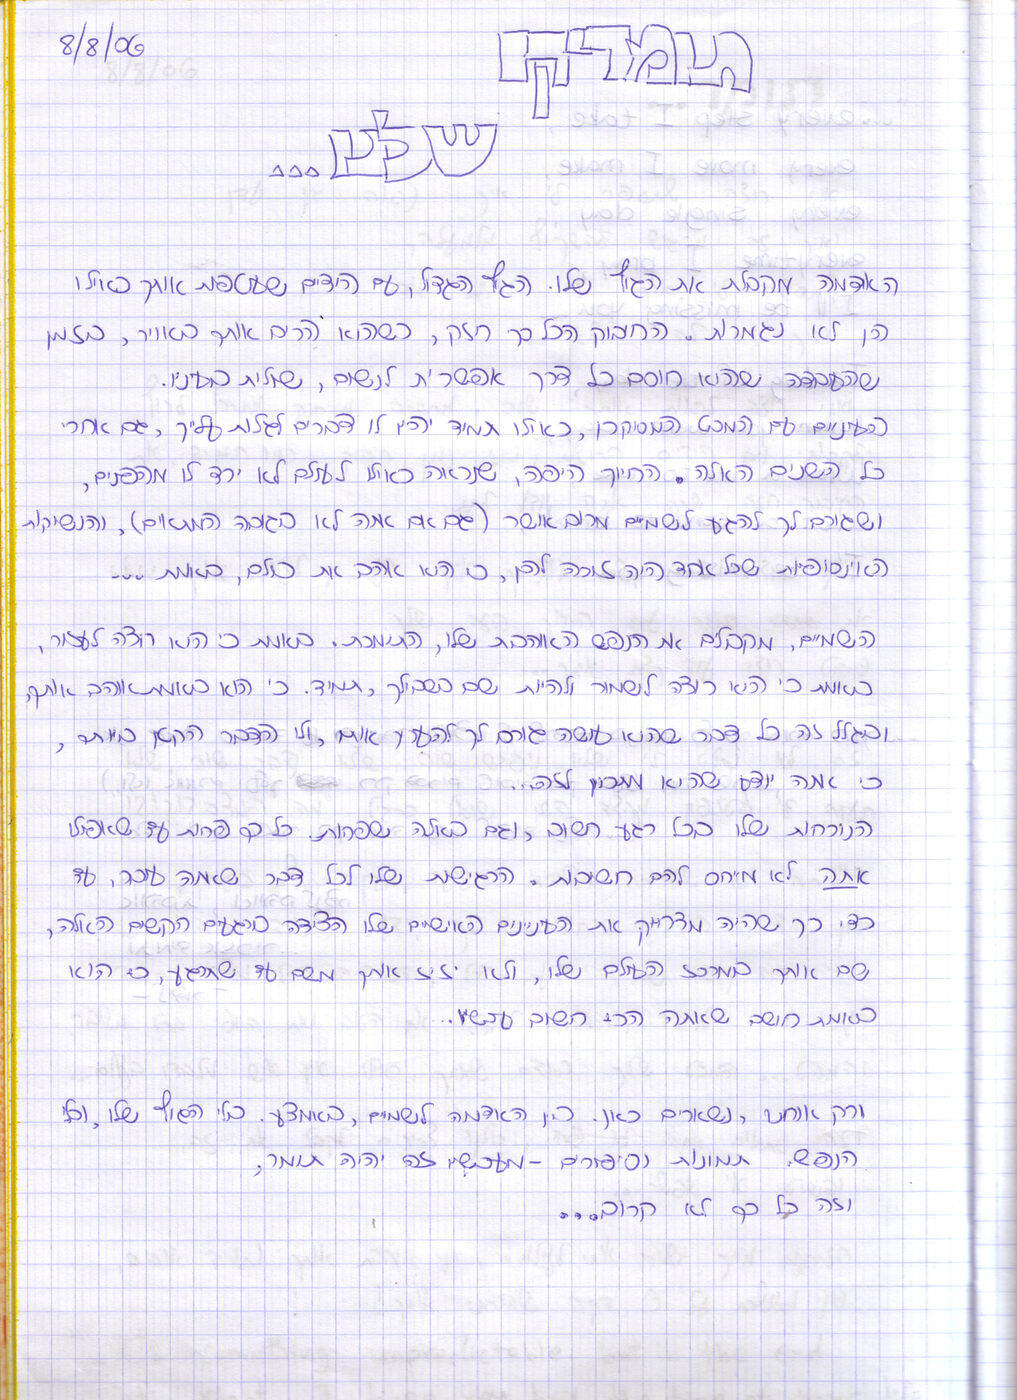 8/8/06
התומריקו
שלנו...
האדמה מקבלת את הגוף שלו. הגוף הגדול, עם הידיים שעוטפות אותך כאילו
הן לא נגמרות. החיבוק הכל כך חזק, כשהוא הרים אותך באוויר, בזמן
שהעובדה שהוא חוסם כל דרך אפשרית לנשום, שולית בעיניו.
העיניים עם המבט המסוקרן, כאילו תמיד יהיו לו דברים לגלות עליך, גם אחרי
כל השנים האלה. החיוך היפה, שנראה כאילו לעולם לא ירד לו מהפנים,
ושגורם לך להגיע לשמיים מרוב אושר (גם אם אתה לא בגובה המתאים), והנשיקות
האינסופיות שכל אחד היה זוכה להן, כי הוא אוהב את כולם, באמת ...
השמיים, מקבלים את הנפש האוהבת שלו, התומכת. באמת כי הוא רוצה לעזור,
באמת כי הוא רוצה לשמור ולהיות שם בשבילך, תמיד. כי הוא באמת אוהב אותך,
ובגלל זה כל דבר שהוא עושה גורם לך להעריך אותו, ולו הדבר הקטן ביותר,
כי אתה יודע שהוא מתכוון לזה...
הנוכחות שלו בכל רגע חשוב, וגם באלה שפחות. כל כך פחות עד שאפילו
אתה לא מייחס להם חשיבות. הרגישות שלו לכל דבר שאתה עובר, עד
כדי כך שהיה מדחיק את העניינים האישיים שלו הצידה ברגעים הקשים האלה,
שם אותך במרכז העולם שלו, ולא יזיז אותך משם עד שתרגע, כי הוא
באמת חושב שאתה הכי חשוב עכשיו..
ורק אנחנו, נשארים כאן. בין האדמה לשמיים, באמצע. בלי הגוף שלו, ובלי
הנפש. תמונות וסיפורים - מעכשיו זה יהיה תומר,
וזה כל כך לא קרוב....